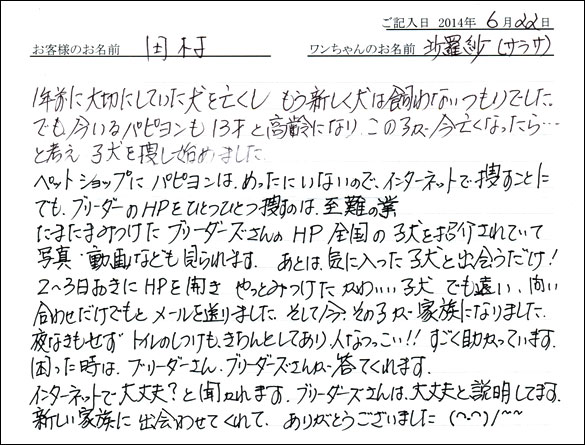 ご記入日 2014年 6月22日
お客様のお名前 田村 ワンちゃんのお名前 沙羅紗(サラサ)
1年前に大切にしていた犬を亡くし もう新しく犬は飼わないつもりでした。
でも今いるパピヨンも13才と高齢になり この子が今亡くなったら…
と考え 子犬を捜し始めました。
ペットショップに パピヨンは、めったにいないので、インターネットで捜すことに
でも、ブリーダーのHPをひとつひとつ捜すのは、至難の業
たまたまみつけた ブリーダーズさんの HP 全国の子犬を紹介されていて
写真・動画なども見られます。 あとは、気に入った子犬と出会うだけ!
2~3日おきにHPを開き やっとみつけた かわいい子犬 でも遠い、問い
合わせだけでもとメールを送りました。そして今、その子が家族になりました。
夜なきもせず トイレのしつけも、きちんとしてあり、人なつっこい!! すごく助かっています。
困った時は、ブリーダーさん、ブリーダーズさんが答えてくれます。
インターネットで大丈夫?と聞かれます。ブリーダーズさんは、大丈夫と説明してます。
新しい家族に出会わせてくれて、ありがとうございました (^-^)/~~